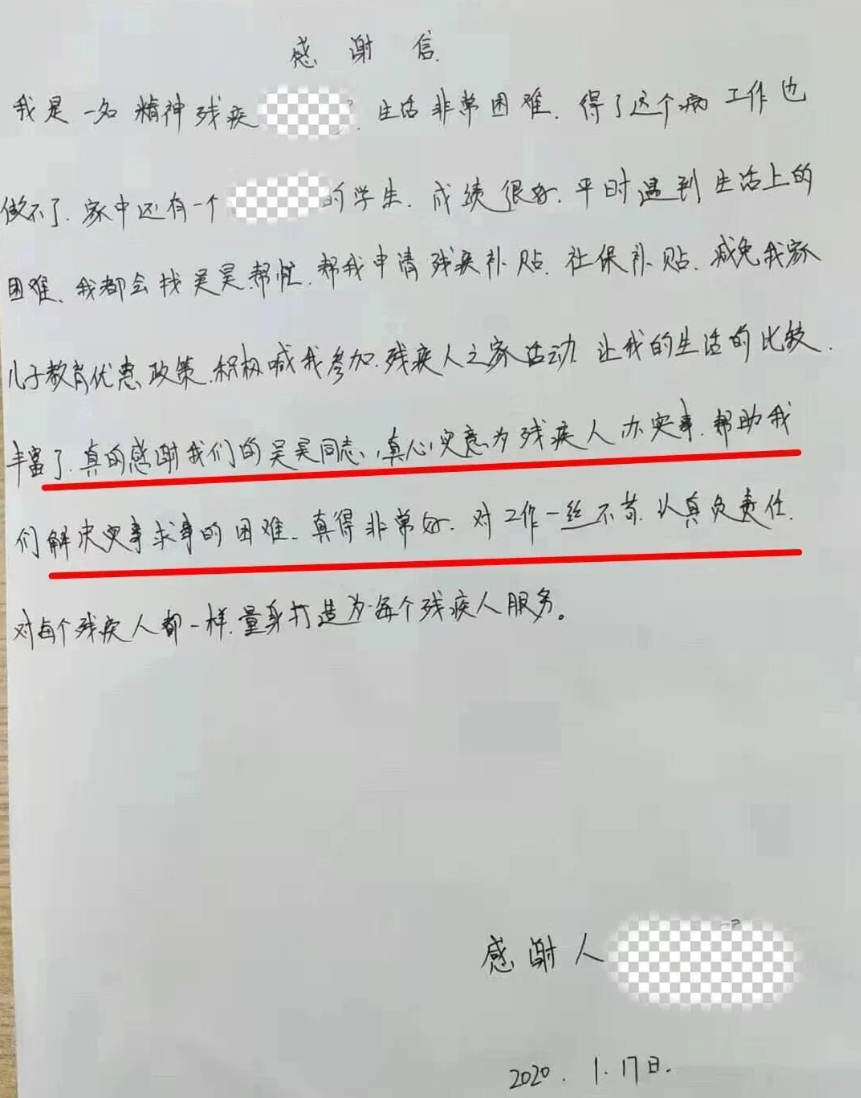 感谢信
我是一名精神残疾 生活非常困难.得了这个病工作也
做不了.家中还有一个 的学生.成绩很好.平时遇到生活上的
困难、我都会找吴昊帮忙.帮我申请残疾补贴.社保补贴.减免我家
儿子教育优惠政策.积极喊我参加.残疾人之家活动 让我的生活的比较.
丰富了.真的感谢我们的吴昊同志,真心实意为残疾人办实事.帮助我
们解决实事求事的困难、真得非常好.对工作一丝不苟.认真负责任.
对每个残疾人都一样.量身打造为每个残疾人服务。
感谢人
2020.1.17日.